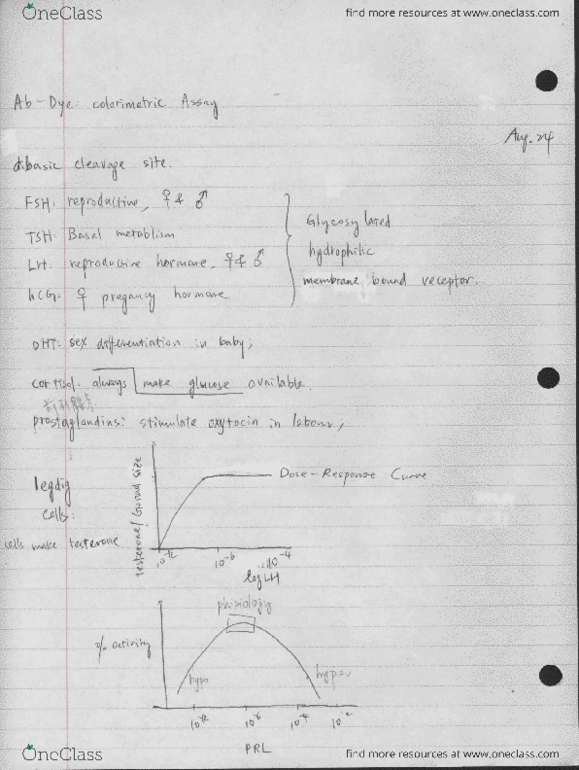 OneClass
find more resources at www.oneclass.com
Ab-Dye: colorimetric Assay
Aug. 24
dibasic cleavage site.
FSH: reproductive, ♀ & ♂
TSH: Basal metablism
LH: reproductive hormone, ♀ & ♂
hCG: ♀ pregancy hormone
Glycosylated
hydrophilic
membrane bound receptor.
DHT: sex differentiation in baby,
cortisol: always make glucose available.
prostaglandins: stimulate oxytocin in labour,
legdig
cells:
cells make testerone
testerone/Gonad size
Dose-Response Curve
10⁻¹² 10⁻⁶ 10⁻⁴
log LH
% activity
phisiology
hypo
hyper
10⁻¹² 10⁻⁶ 10⁻⁴ 10⁻²
PRL
OneClass
find more resources at www.oneclass.com